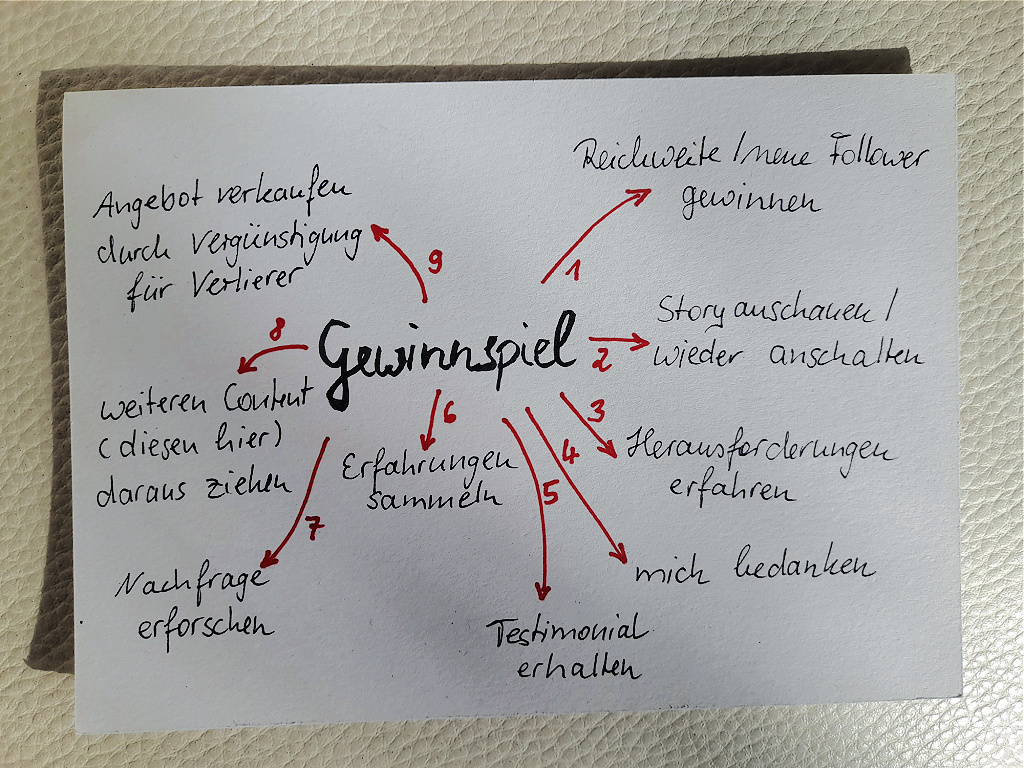 Gewinnspiel
1
Reichweite / neue Follower
gewinnen
2
Story anschauen /
wieder anschalten
3
Herausforderungen
erfahren
4
mich bedanken
5
Testimonial
erhalten
6
Erfahrungen
sammeln
7
Nachfrage
erforschen
8
weiteren Content
(diesen hier)
daraus ziehen
9
Angebot verkaufen
durch Vergünstigung
für Verlierer